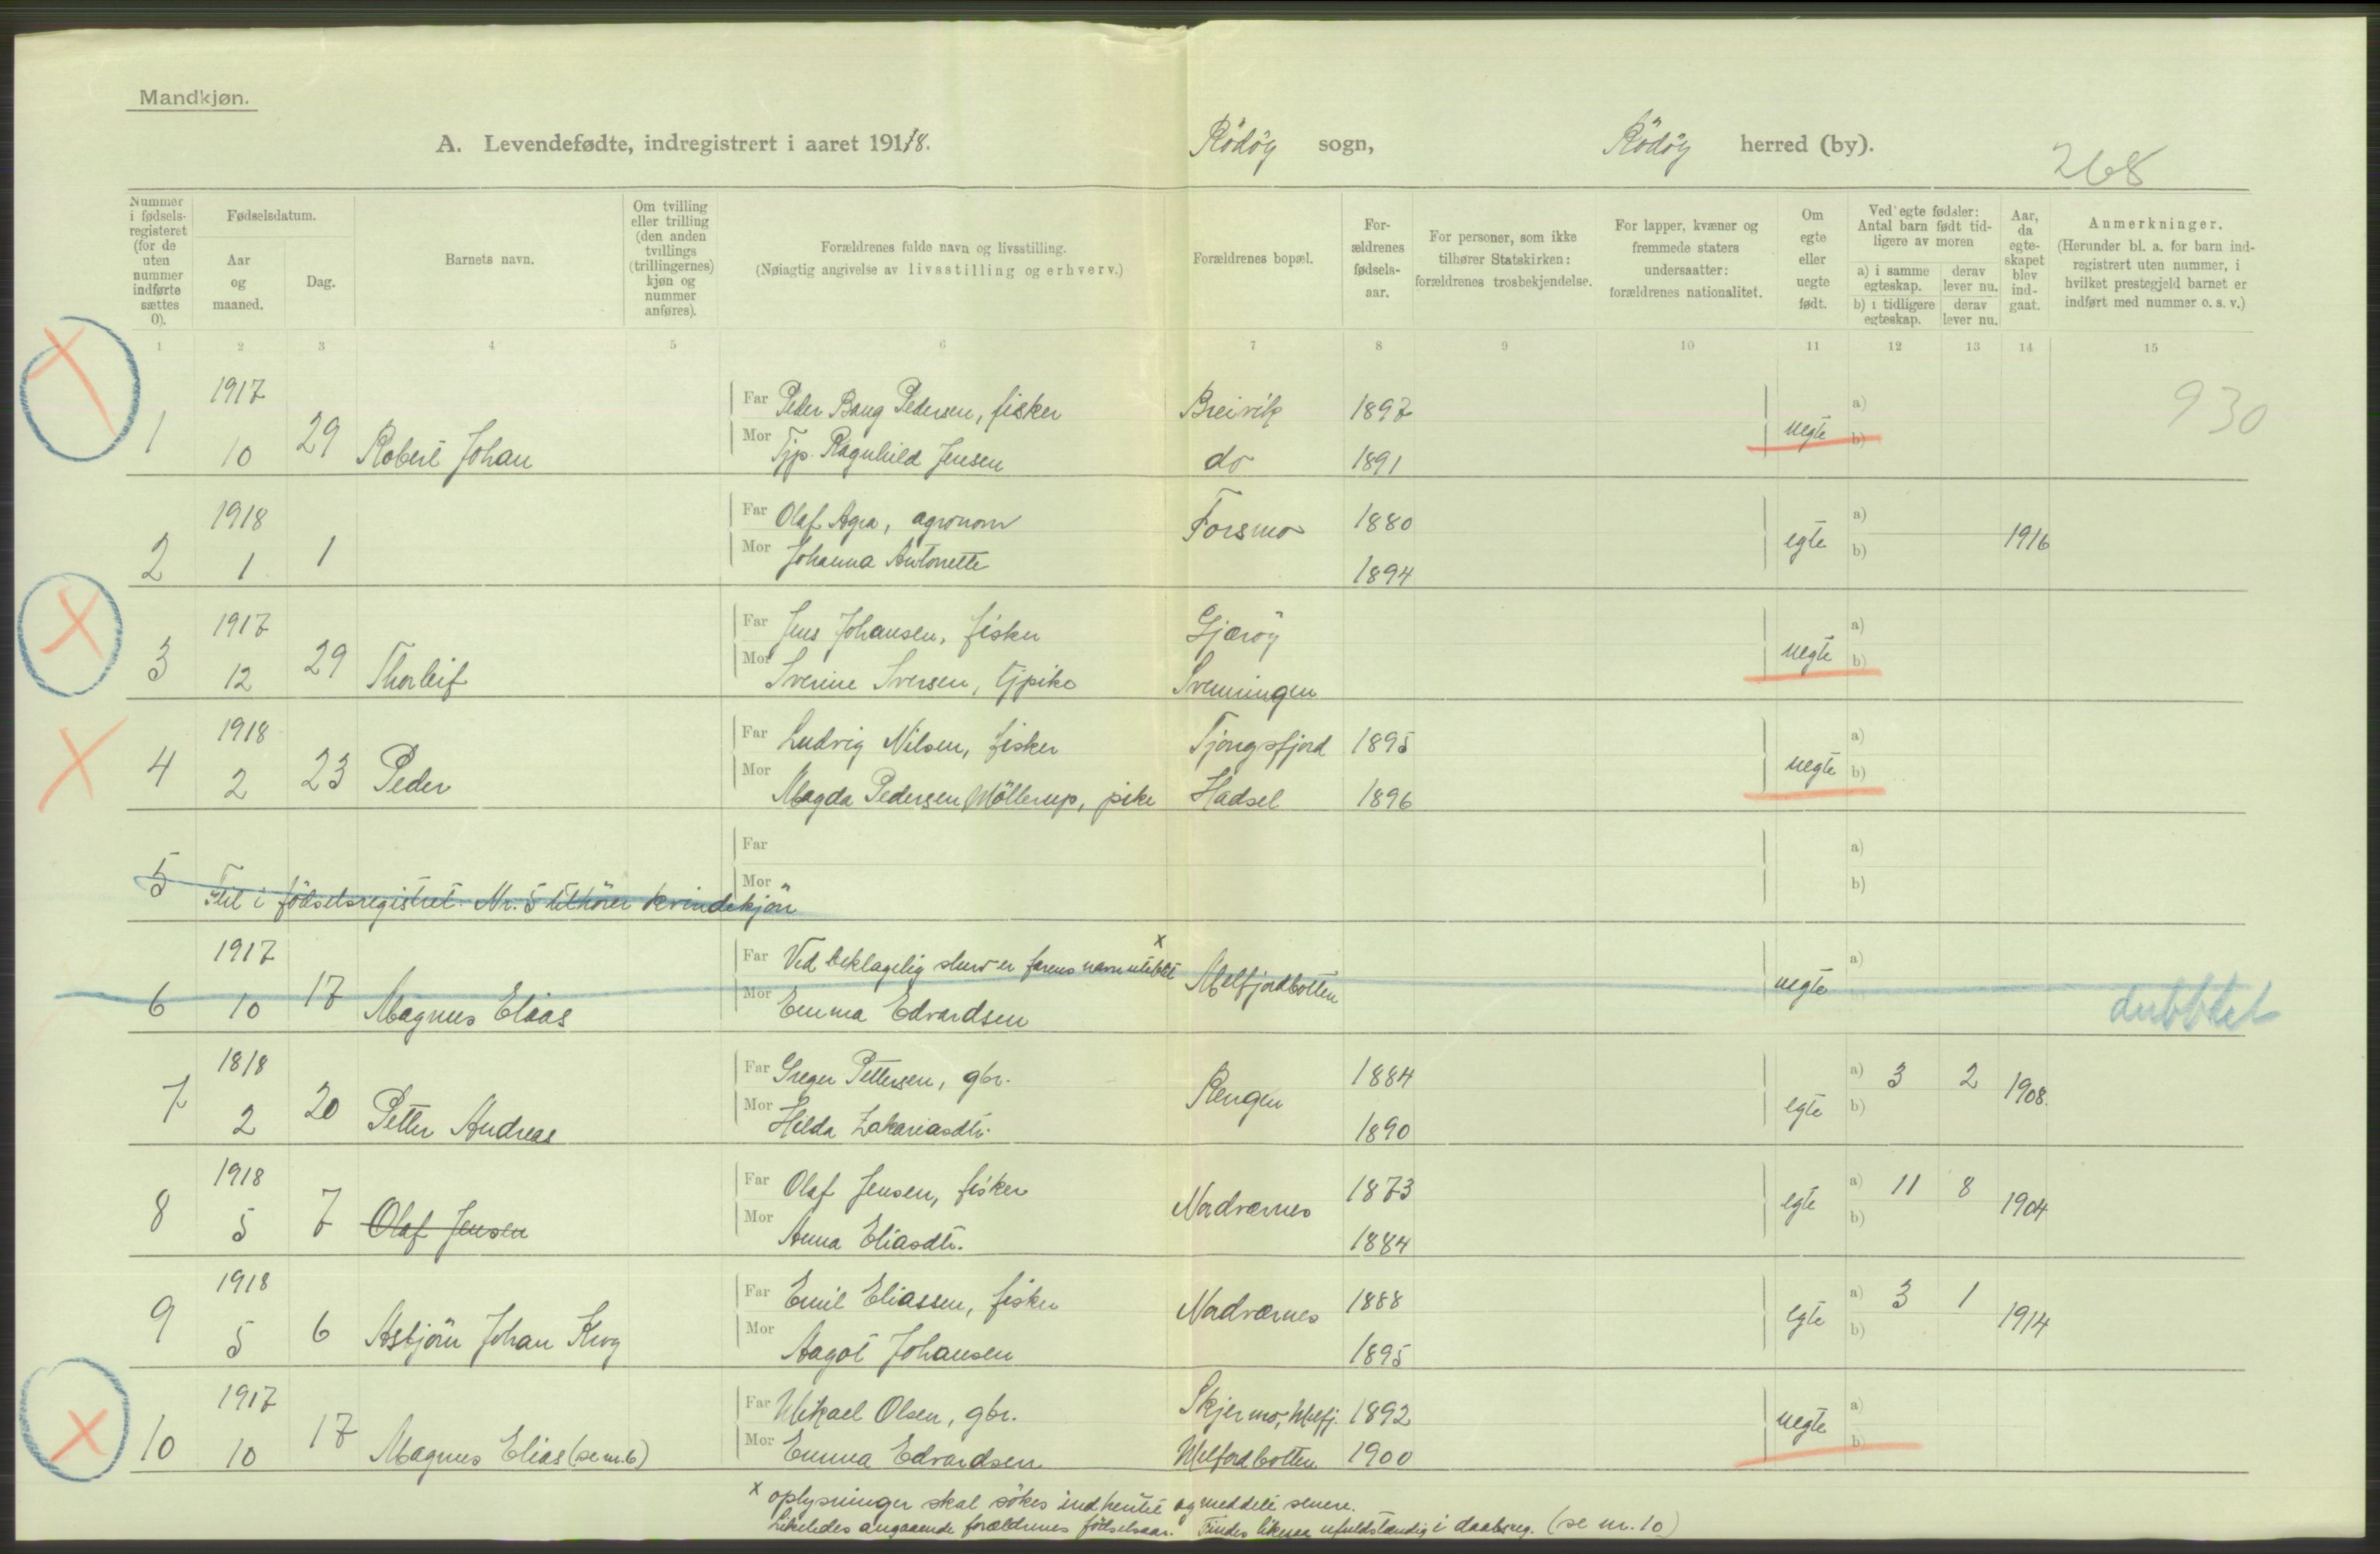 Mandkjøn.
A. Levendefødte, indregistrert i aaret 1918. Rödöy sogn, Rödöy herred (by).
268
Nummer i fødselsregisteret (for de uten nummer indførte sættes 0).
Fødselsdatum.
Aar og maaned.
Dag.
Barnets navn.
Om tvilling eller trilling (den anden tvillings (trillingernes) kjøn og nummer anføres).
Forældrenes fulde navn og livsstilling.
(Nøiagtig angivelse av livsstilling og erhverv.)
Forældrenes bopæl.
Forældrenes fødselsaar.
For personer, som ikke tilhører Statskirken: forældrenes trosbekjendelse.
For lapper, kvæner og fremmede staters undersaatter: forældrenes nationalitet.
Om egte eller uegte født.
Ved egte fødsler: Antal barn født tidligere av moren
a) i samme egteskap.
derav lever nu.
b) i tidligere egteskap.
derav lever nu.
Aar, da egteskapet blev indgaat.
Anmerkninger.
(Herunder bl. a. for barn indregistrert uten nummer, i hvilket prestegjeld barnet er indført med nummer o. s. v.)
1 2 3 4 5 6 7 8 9 10 11 12 13 14 15
1917 Far Peder Bang Pedersen, fisker Breivik 1897 a) 930
1 10 29 Robert Johan Mor Tjp. Ragnhild Jensen do 1891 uegte b)
1918 Far Olaf Agra, agronom Forsmo 1880 a)
2 1 1 Mor Johanna Antonette 1894 egte b) 1916
1917 Far Jens Johansen, fisker Gjæröy a)
3 12 29 Thorleif Mor Sverine Iversen, tjpike Svenningen uegte b)
1918 Far Ludvig Nilsen, fisker Tjongsfjord 1895 a)
4 2 23 Peder Mor Magda Pedersen Möllerup, pike Hadsel 1896 uegte b)
Far a)
5 Feil i födselsregistret. Nr. 5 tilhörer kvindekjön Mor b)
1917 Far Ved beklagelig slurv er farens navn uteblit x Melfjordbotten a)
6 10 17 Magnus Elias Mor Emma Edvardsen uegte dubblet
1818 Far Greger Pettersen, gbr. Rengen 1884 a) 3 2 1908.
7 2 20 Petter Andreas Mor Hilda Zakariasdtr. 1890 egte b)
1918 Far Olaf Jensen, fisker Nordværnes 1873 a) 11 8 1904
8 5 7 Olaf Jensen Mor Anna Eliasdtr. 1884 egte b)
1918 Far Emil Eliassen, fisker Nordværnes 1888 a) 3 1 1914
9 5 6 Asbjörn Johan Krog Mor Aagot Johansen 1895 egte b)
1917 Far Mikael Olsen, gbr. Skjermo, Melfj. 1892 a)
10 10 17 Magnus Elias (se nr. 6) Mor Emma Edvardsen Melfordbotten 1900 uegte b)
x oplysninger skal sökes indhentet og meddelt senere.
Likeledes angaaende forældrenes födselsaar. Findes likesaa ufuldstændig i daabsreg. (se nr. 10)